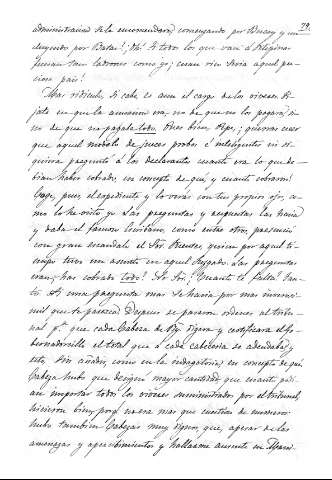 29.
administracion de la encomendera, comenzando por Buscay y con
cluyendo por Batac! ¡Oh! Si todos los que van á Filipinas
fueran tan ladrones como yo; cuan rico seria aquel pre-
cioso pais!
Mas ridiculo, si cabe es aun el cargo de los viveres. Fi-
jate en que la acusacion era, no de que no los pagara, si
no de que no pagaba todo. Pues bien Pepe, ¿querrás creer
que aquel modelo de jueces probos é inteligentes ni si-
quiera preguntó á los declarantes cuanto era lo que de-
bian haber cobrado, en concepto de qué, y cuanto cobraron?
pues, el espediente y lo veras con tus propios ojos, co-
mo lo he visto yo. Las preguntas y respuestas las hacia
y daba el famoso escribano, como entre otros, presenció
con gran escandalo el Sor. quien por aquel ti-
empo tuvo un asunto en aquel Juzgado. Las preguntas
eran; has cobrado todo? Sí Sor. ¿Cuanto te falta? Tan-
to. Ni una pregunta mas se hacia por mas inverosi-
mil que te parezca. Despues se pasaron ordenes al tribu-
nal pa. que cada Cabeza de dijera y certificara el Go-
bernadorcillo el total que á cada cabeceria se adeudaba, y
esto, sin añadir, como en la indagatoria, en concepto de qué.
Cabeza hubo que designó mayor cantidad que cuanto podi-
an importar todos los viveres suministrados por el tribunal,
hicieron bien, porque no era mas que cuestion de
hubo tambien Cabezas muy dignos, que, apesar de las
amenazas y apercibimientos y hallarme ausente en Mani-